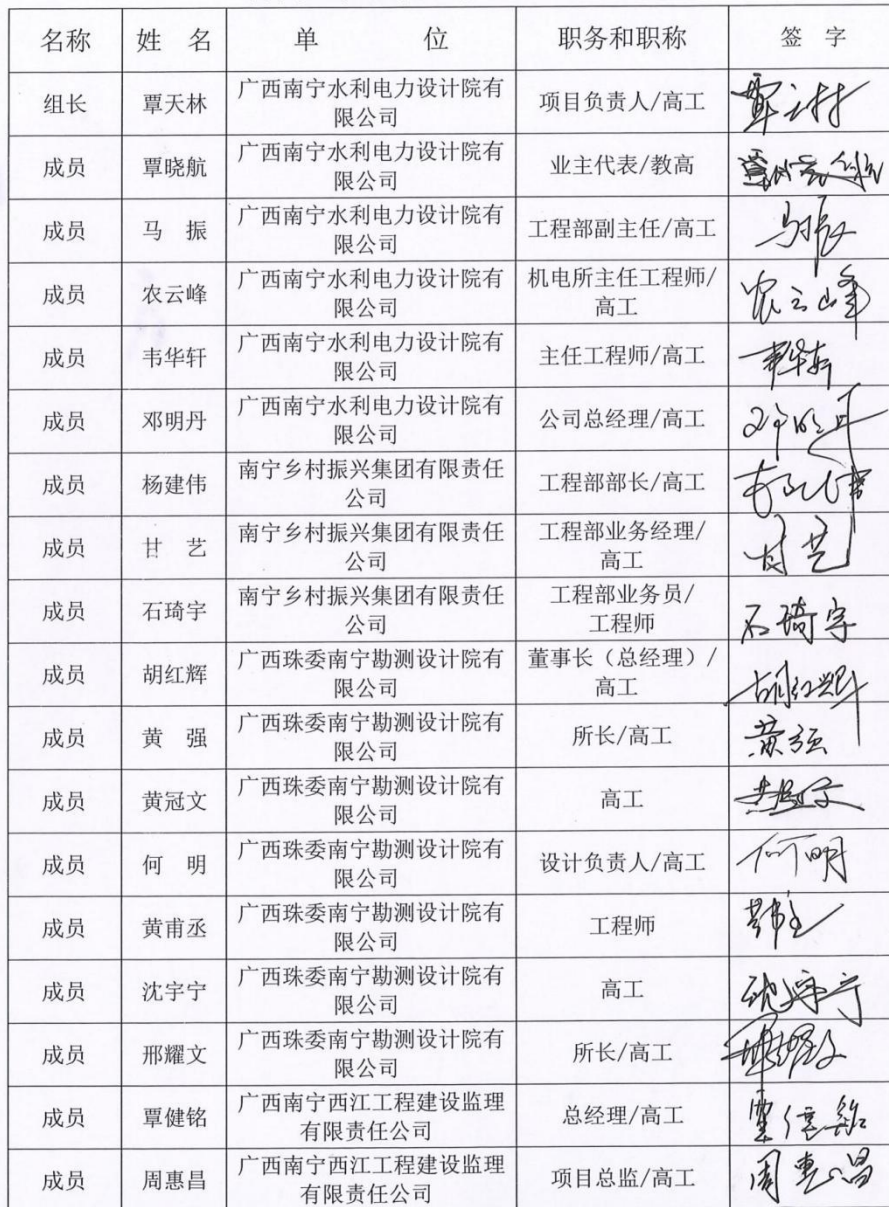 名称 姓 名 单 位 职务和职称 签 字
组长 覃天林 广西南宁水利电力设计院有限公司 项目负责人/高工 覃天林
成员 覃晓航 广西南宁水利电力设计院有限公司 业主代表/教高
成员 马 振 广西南宁水利电力设计院有限公司 工程部副主任/高工 马振
成员 农云峰 广西南宁水利电力设计院有限公司 机电所主任工程师/高工 农云峰
成员 韦华轩 广西南宁水利电力设计院有限公司 主任工程师/高工 韦华轩
成员 邓明丹 广西南宁水利电力设计院有限公司 公司总经理/高工 邓明丹
成员 杨建伟 南宁乡村振兴集团有限责任公司 工程部部长/高工
成员 甘 艺 南宁乡村振兴集团有限责任公司 工程部业务经理/高工 甘艺
成员 石琦宇 南宁乡村振兴集团有限责任公司 工程部业务员/工程师 石琦宇
成员 胡红辉 广西珠委南宁勘测设计院有限公司 董事长（总经理）/高工 胡红辉
成员 黄 强 广西珠委南宁勘测设计院有限公司 所长/高工 黄强
成员 黄冠文 广西珠委南宁勘测设计院有限公司 高工
成员 何 明 广西珠委南宁勘测设计院有限公司 设计负责人/高工 何明
成员 黄甫丞 广西珠委南宁勘测设计院有限公司 工程师
成员 沈宇宁 广西珠委南宁勘测设计院有限公司 高工 沈宇宁
成员 邢耀文 广西珠委南宁勘测设计院有限公司 所长/高工
成员 覃健铭 广西南宁西江工程建设监理有限责任公司 总经理/高工 覃健铭
成员 周惠昌 广西南宁西江工程建设监理有限责任公司 项目总监/高工 周惠昌